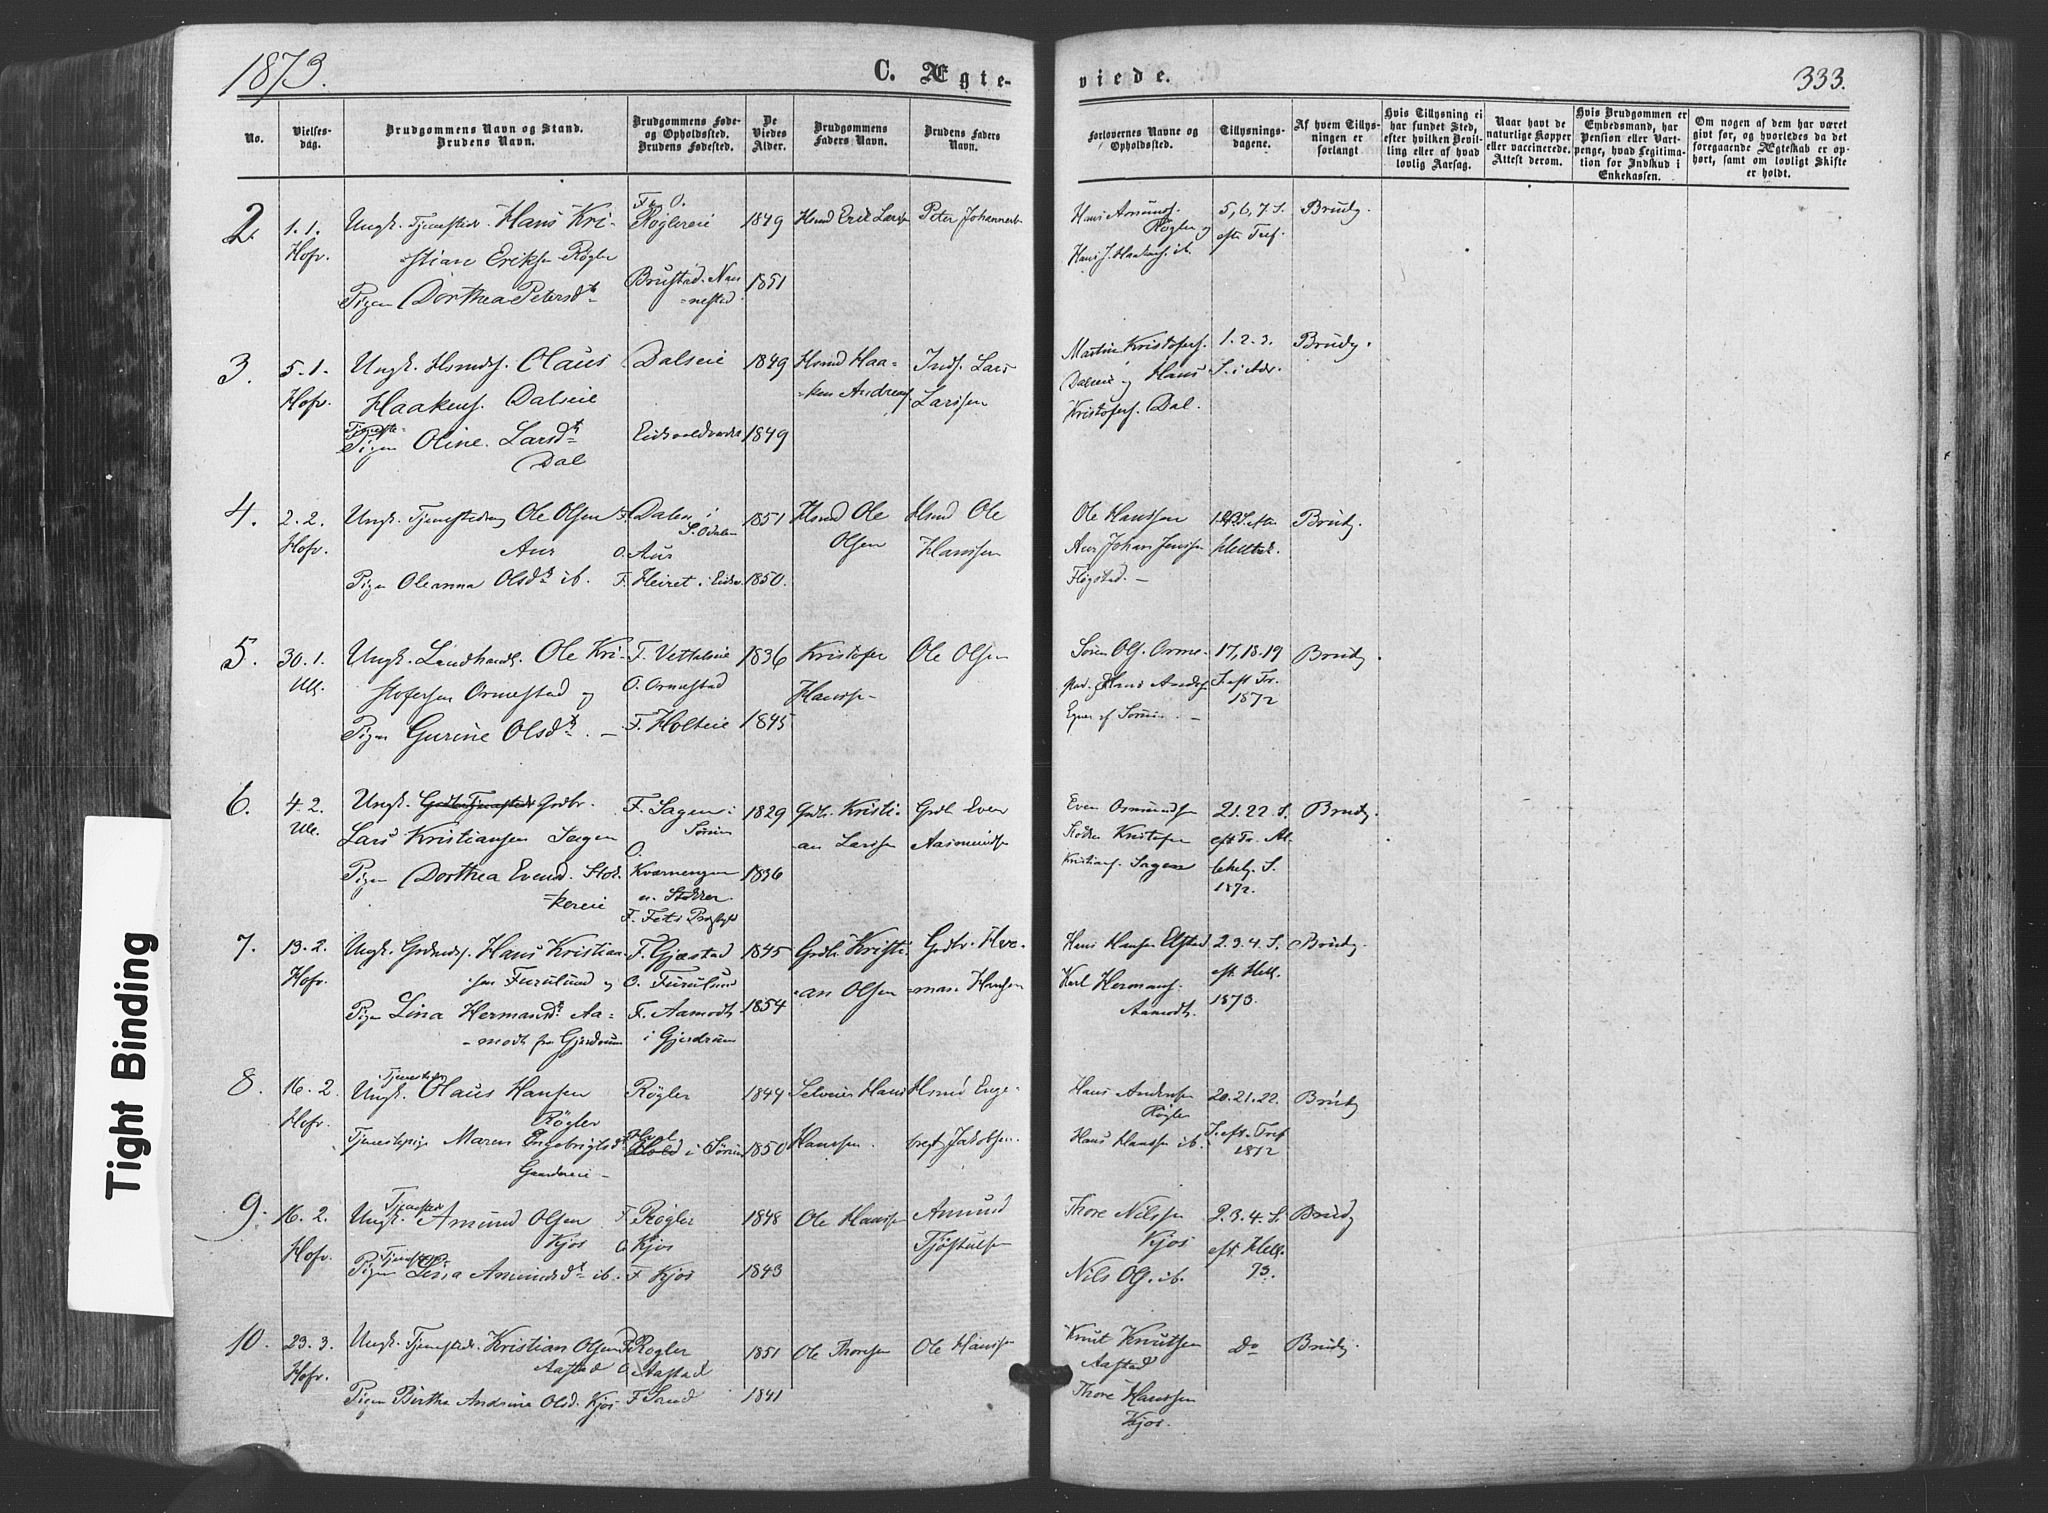 1873.
C. Ægte-
viede.
333.
No.
Vielses-
dag.
Brudgommens Navn og Stand.
Brudens Navn.
Brudgommens Føde-
og Opholdssted.
Brudens Fødested.
De
Viedes
Alder.
Brudgommens
Faders Navn.
Brudens Faders
Navn.
Forlovernes Navne og
Opholdssted.
Tillysnings-
dagene.
Af hvem Tillys-
ningen er
forlangt
Hvis Tillysning ei
har fundet Sted,
efter hvilken Bevil-
ling eller af hvad
lovlig Aarsag.
Naar havt de
naturlige Kopper
eller vaccinerede.
Attest derom.
Hvis Brudgommen er
Embedsmand, har
Pension eller Vart-
penge, hvad Legitima-
tion for Indskud i
Enkekassen.
Om nogen af dem har været
gift før, og hvorledes da det
foregaaende Ægteskab er op-
hørt, samt om lovligt Skifte
er holdt.
2.
1.1.
Hofv.
Ungk. Tjenestedr. Hans Kri-
stian Eriksen Røgler
Pigen Dorthea Petersdt
F. O.
Røglereie
Brustad. Nan-
nestad.
1849
1851
Hsmd Erik Larsen
Peter Johannes
Hans Amunds.
Røgler og
Hans J. Haakens. ib.
5,6,7 S.
efter Tref.
Brudg.
3.
5.1.
Hofv.
Ungk. Hsmds. Olaus
Haakens. Dalseie
Tjeneste-
Pigen Oline Larsdt
Dal
Dalseie
Eidsvoldværk
1849
1849
Hsmd Haa-
ken Andreas
Inds. Lars
Larssen
Martin Kristofers.
Dalseie og Hans
Kristofers. Dal.
1.2.3.
S. i Adv.
Brudg.
4.
2.2.
Hofv.
Ungk. Tjenestedreng Ole Olsen
Aur
Pigen Oleanna Olsdt ib.
F. Dalen i
S. Odalen
O. Aur
F. Heiret i Eidsv.
1851
1850.
Hsmd Ole
Olsen
Hsmd Ole
Hanssen
Ole Hanssen
Aur Johan Jenssen
Flogstad. —
Brudg.
5.
30.1.
Ull.
Ungk. Landhandl. Ole Kri-
stofersen Ormestad og
Pigen Gurine Olsdt. —
F. Vettaleie
O. Ormestad
F. Holteie
1836
1845
Kristofer
Hanss-
Ole Olsen
Søren Ols. Orme-
stad. Hans Anders.
17,18.19
S. eft Tr.
1872
Brudg.
6.
4.2.
Ull.
Ungk. Grdbr.
Lars Kristiansen Sagen
Pigen Dorthea Evensd. Stok-
kereie
F. Sagen i
Sørum
O.
Kværnengen
u. Stokker
F. Fets Præstegjeld
1829
1836
Grdbr. Kristi-
an Larssen
Grdb. Even
Aasmundsen
Even Osmundsen
Stokker Kristofer
Kristians. Sagen
21.22 S.
eft Tr. Al-
lehelg. S.
1872.
Brudg.
7.
13.2.
Hofv.
Ungk. Grdmds. Hans Kristian-
sen Furulund og
Pigen Lina Hermansdt. Aa-
modt fra Gjerdrum
F. Gjæstad
O. Furulund
F. Aamodt
i Gjerdrum
1845
1854
Grdb. Kristi-
an Olsen
Grdbr. Her-
man Hansen
Hans Hansen Elstad
Karl Hermans.
Aamodt.
2.3.4. S.
eft. Hell.
1873.
Brudg.
8.
16.2.
Hofv.
Tjenestedr
Ungk. Olaus Hansen
Røgler
Tjenestepige Maren Engebrigtsdt
Gaardereie —
Røgler
i Sørum
1844
1850
Selveier Hans
Hanssen.
Hsmd Enge-
bret Jakobsen.
Hans Andersen
Røgler
Hans Hanssen ib.
20.21.22.
S. eft. Tref
1872
Brudg
9.
16.2.
Hofv.
Tjenestedr
Ungk. Amund Olsen
Kjos
Tjeneste
Pigen Lina Amundsdt ib.
F Røgler
O. Kjos
F Kjos
1848
1843
Ole Hanssen
Amund
Tjøstulsen
Thore Nilssen
Kjos
Nils Ols. ib.
2.3.4. S.
eft Hell.
73.
Brudg
10.
23.3.
Hofv.
Ungk. Tjenestedr. Kristian Olsen
Aastad
Pigen Birthe Andrine Olsd. Kjos
F Røgler
O. Aastad
F Sand
1851
1841
Ole Thoresen
Ole Hanssen
Knut Knutsen
Aastad
Thore Hanssen
Kjos.
Do
Brudg.
Tight Binding